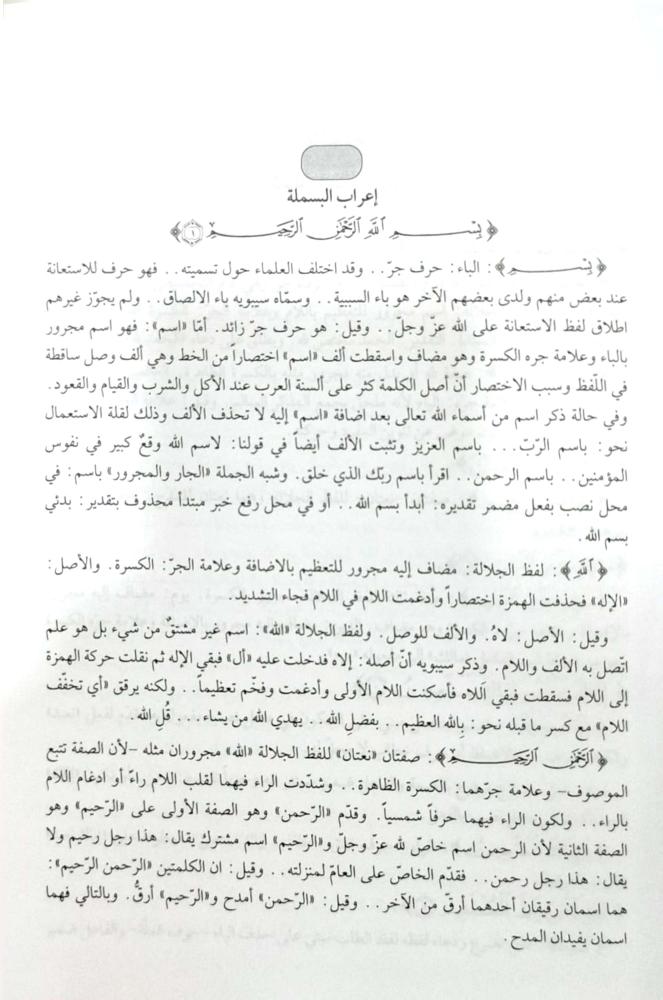 إعراب البسملة
﴿بِسْمِ اللَّهِ الرَّحْمَٰنِ الرَّحِيمِ ١﴾
﴿بِسْمِ﴾: الباء: حرف جرّ.. وقد اختلف العلماء حول تسميته.. فهو حرف للاستعانة
عند بعض منهم ولدى بعضهم الآخر هو باء السببية.. وسمّاه سيبويه باء الالصاق.. ولم يجوّز غيرهم
اطلاق لفظ الاستعانة على الله عزّ وجلّ.. وقيل: هو حرف جرّ زائد. أمّا «اسم»: فهو اسم مجرور
بالباء وعلامة جره الكسرة وهو مضاف واسقطت ألف «اسم» اختصاراً من الخط وهي ألف وصل ساقطة
في اللّفظ وسبب الاختصار أنّ أصل الكلمة كثر على ألسنة العرب عند الأكل والشرب والقيام والقعود.
وفي حالة ذكر اسم من أسماء الله تعالى بعد اضافة «اسم» إليه لا تحذف الألف وذلك لقلة الاستعمال
نحو: باسم الرّبّ... باسم العزيز وتثبت الألف أيضاً في قولنا: لاسم الله وقعٌ كبير في نفوس
المؤمنين.. باسم الرحمن.. اقرأ باسم ربّك الذي خلق. وشبه الجملة «الجار والمجرور» باسم: في
محل نصب بفعل مضمر تقديره: أبدأ بسم الله.. أو في محل رفع خبر مبتدأ محذوف بتقدير: بدئي
بسم الله.
﴿اللَّهِ﴾: لفظ الجلالة: مضاف إليه مجرور للتعظيم بالاضافة وعلامة الجرّ: الكسرة. والأصل:
«الإله» فحذفت الهمزة اختصاراً وأدغمت اللام في اللام فجاء التشديد.
وقيل: الأصل: لاهٌ. والألف للوصل. ولفظ الجلالة «الله»: اسم غير مشتقّ من شيء بل هو علم
اتّصل به الألف واللام. وذكر سيبويه أنّ أصله: إلاه فدخلت عليه «أل» فبقي الإله ثم نقلت حركة الهمزة
إلى اللام فسقطت فبقي ألله فأسكنت اللام الأولى وأدغمت وفخّم تعظيماً.. ولكنه يرقق «أي تخفّف
اللام» مع كسر ما قبله نحو: بِالله العظيم.. بفضلِ الله.. يهدي الله من يشاء... قُلِ الله.
﴿الرَّحْمَٰنِ الرَّحِيمِ﴾: صفتان «نعتان» للفظ الجلالة «الله» مجروران مثله –لأن الصفة تتبع
الموصوف– وعلامة جرّهما: الكسرة الظاهرة.. وشدّدت الراء فيهما لقلب اللام راءً أو ادغام اللام
بالراء.. ولكون الراء فيهما حرفاً شمسياً. وقدّم «الرّحمن» وهو الصفة الأولى على «الرّحيم» وهو
الصفة الثانية لأن الرحمن اسم خاصّ لله عزّ وجلّ و«الرّحيم» اسم مشترك يقال: هذا رجل رحيم ولا
يقال: هذا رجل رحمن.. فقدّم الخاصّ على العامّ لمنزلته.. وقيل: ان الكلمتين «الرّحمن الرّحيم»:
هما اسمان رقيقان أحدهما أرقّ من الآخر.. وقيل: «الرّحمن» أمدح و«الرّحيم» أرقُّ. وبالتالي فهما
اسمان يفيدان المدح.